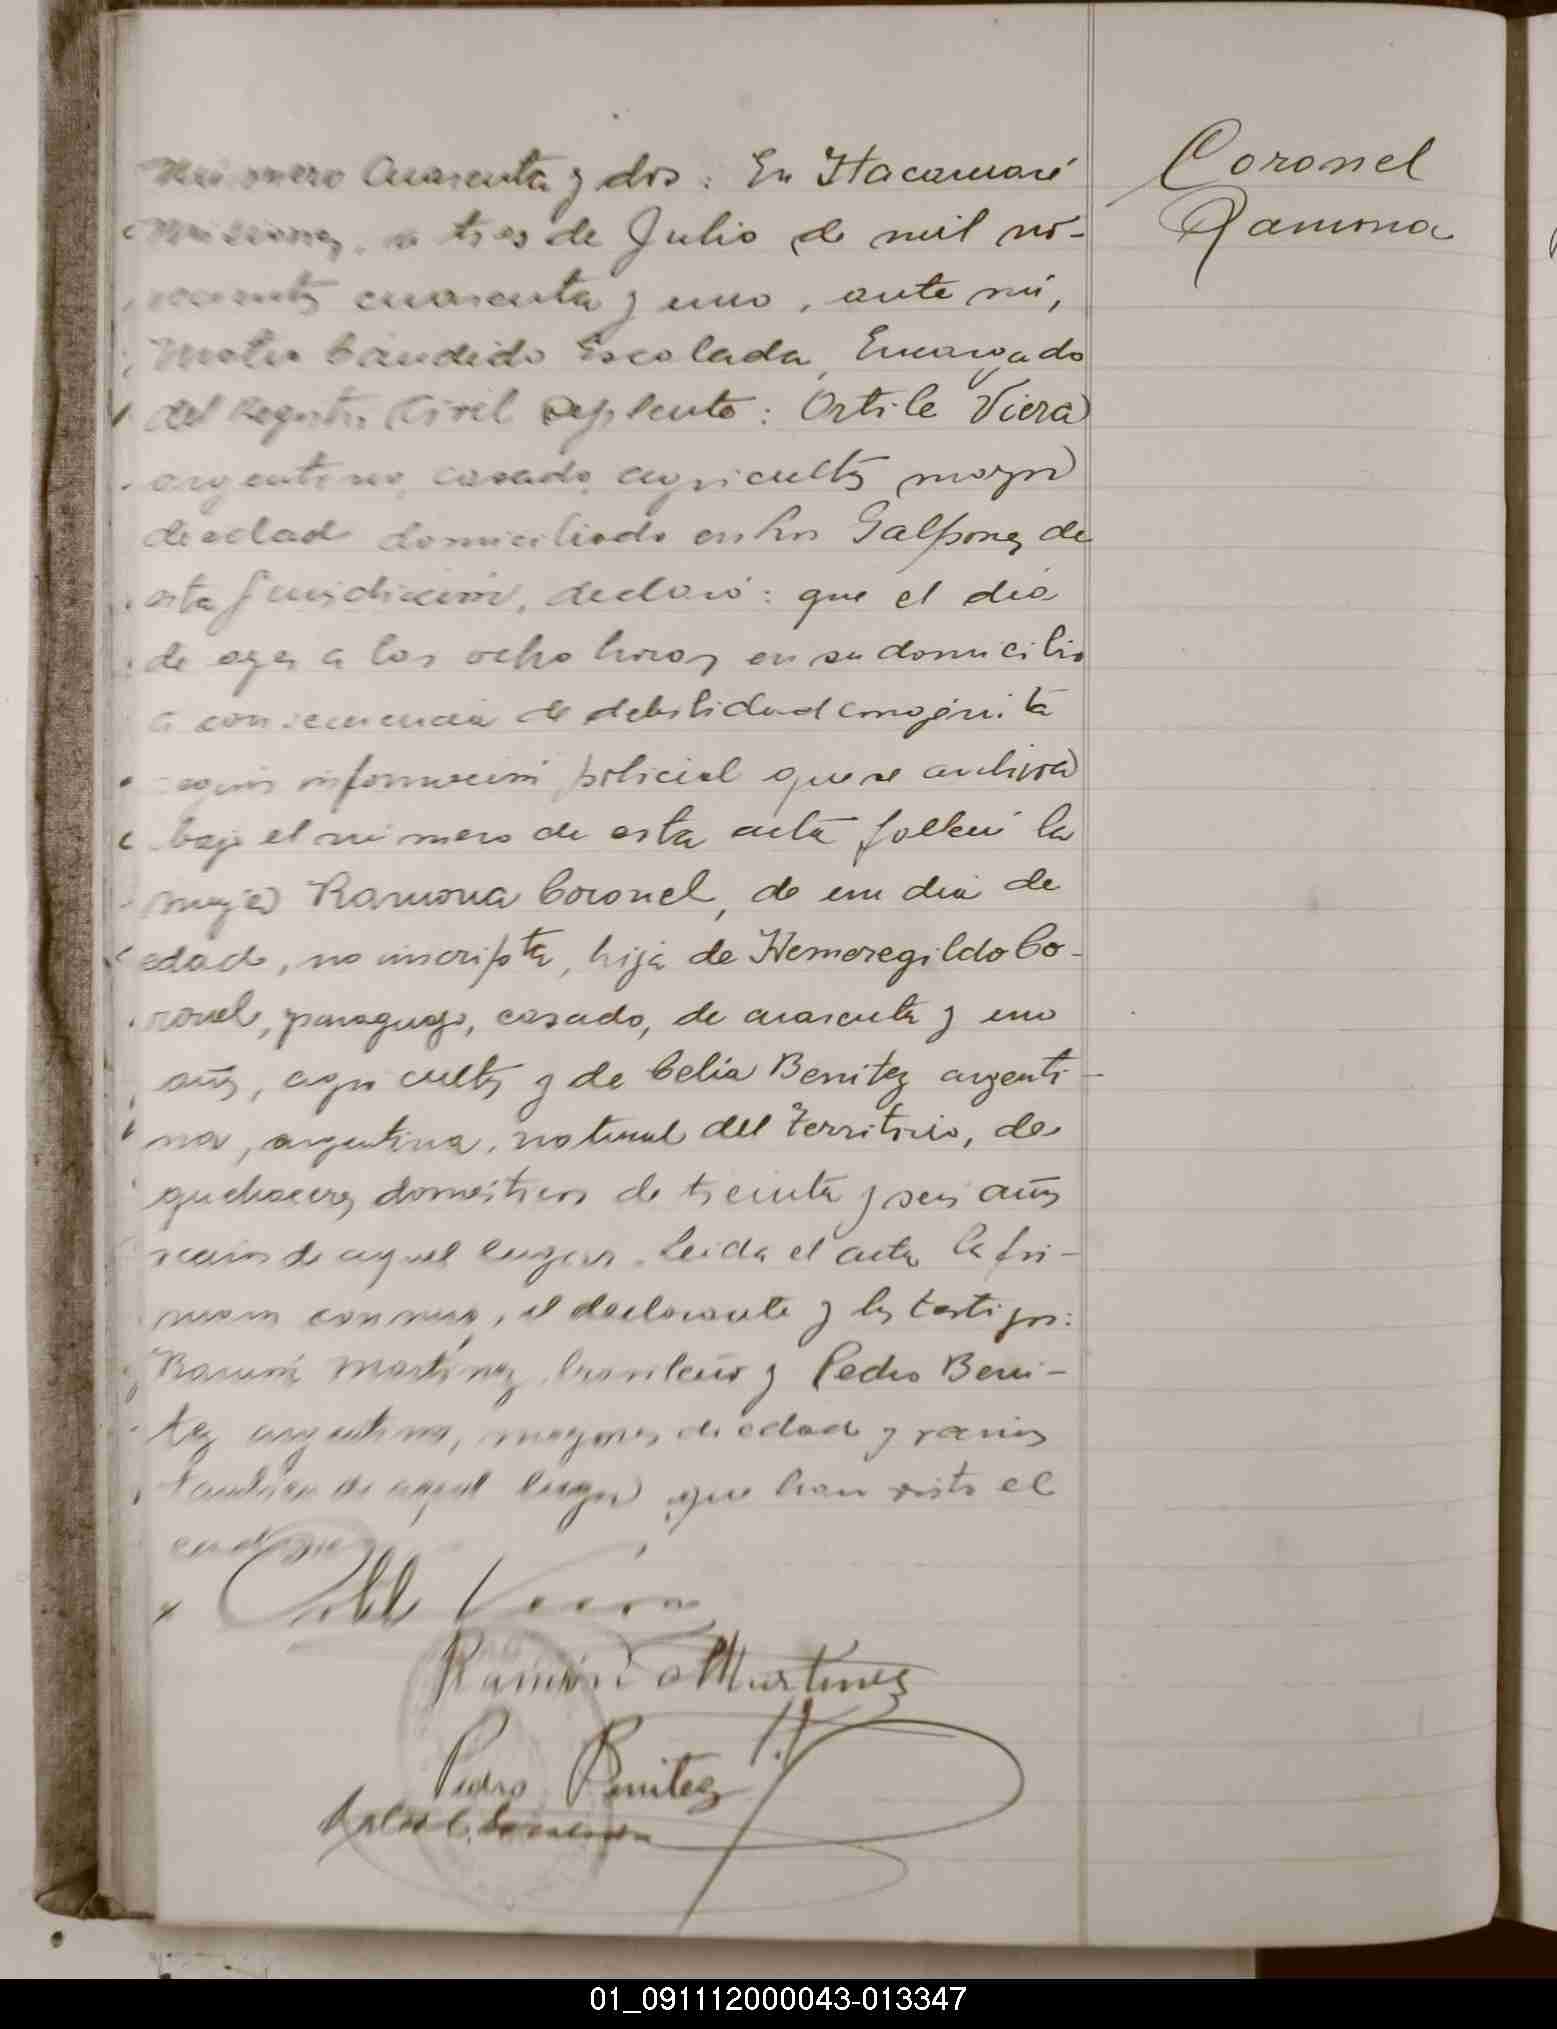 Número Cuarenta y dos: En Itacaruaré
Coronel
Ramona
Misiones, a tres de Julio de mil no-
vecientos cuarenta y uno, ante mí,
Cándido Escalada, Encargado
del Registro Civil Suplente: Ortile Viera
argentino, casado, agricultor, mayor
de edad domiciliado en los Galpones de
esta jurisdicción, declaró: que el día
de ayer a las ocho horas en su domicilio
a consecuencia de debilidad congénita
según información policial que se archiva
bajo el número de esta acta falleció la
mujer Ramona Coronel, de un día de
edad, no inscripta, hija de Hemeregildo Co-
ronel, paraguayo, casado, de cuarenta y uno
años, agricultor y de Celia Benitez argenti-
na, argentina, natural del Territorio, de
quehaceres domésticos de treinta y seis años
vecinos de aquel lugar. Leida el acta la fir-
maron conmigo, el declarante y los testigos:
Ramón Martínez, brasileño y Pedro Beni-
tez argentino, mayores de edad y vecinos
también de aquel lugar que han visto el
cadáver
Viera
Ramón Martinez
Pedro Benitez
01_091112000043-013347